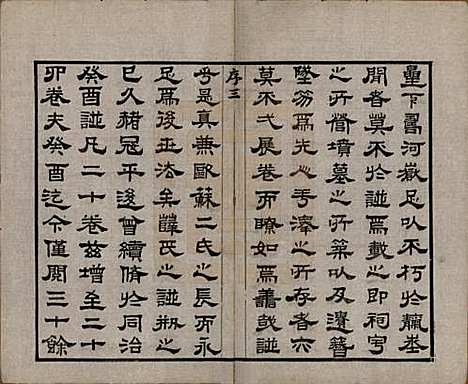 下爲河嶽足以不朽於
聞者莫不於譜焉載之即祠宇
之所營墳墓之所築以及遺簪
墜笏爲先之手澤之所存者亦
莫不弌展卷而瞭如焉 哉譜
序三
乎是真兼歐蘇二氏之長而永
足爲後世法矣薛氏之譜刱之
已久赭冠平後曾續脩於同治
癸酉譜凡二十卷茲增至二十
卯卷夫癸酉迄今僅閱三十餘